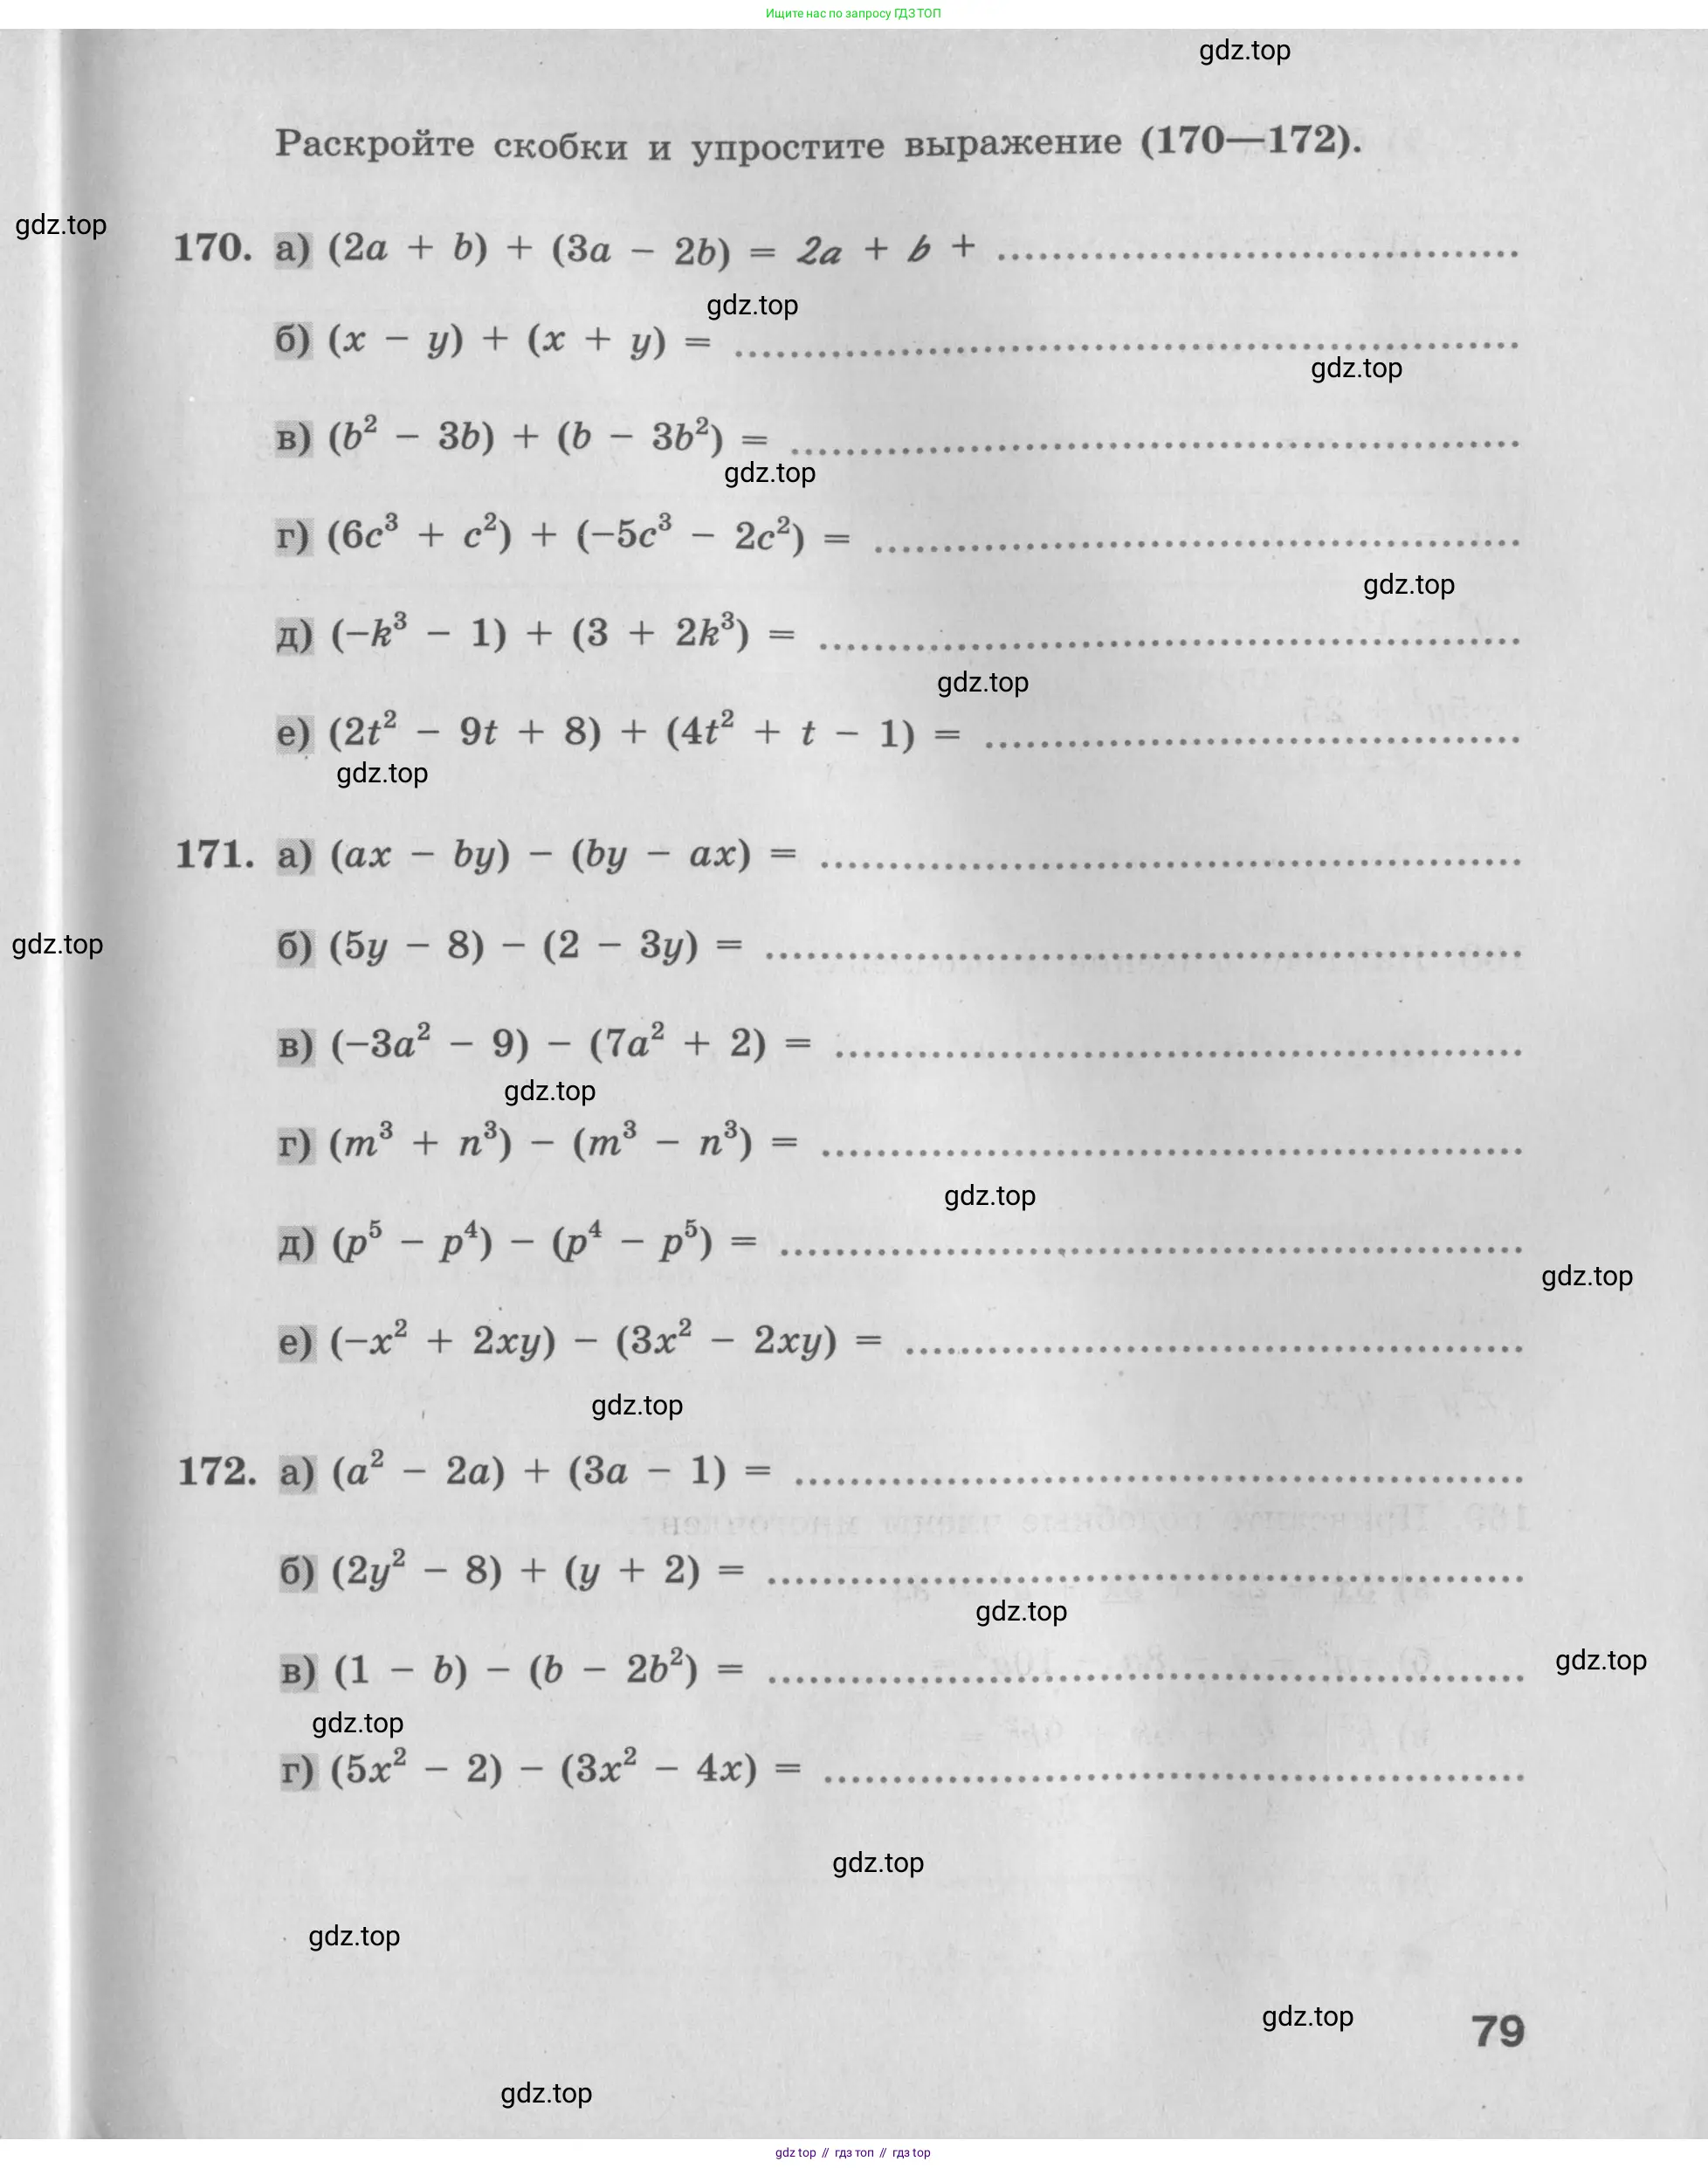 Ищите нас по запросу ГДЗ ТОП
gdz.top
Раскройте скобки и упростите выражение (170—172).
gdz.top
170. а) (2a + b) + (3a − 2b) = 2a + b + ......................................
gdz.top
б) (x − y) + (x + y) = .........................................................
gdz.top
в) (b² − 3b) + (b − 3b²) = .....................................................
gdz.top
г) (6c³ + c²) + (−5c³ − 2c²) = ...............................................
gdz.top
д) (−k³ − 1) + (3 + 2k³) = ...................................................
gdz.top
е) (2t² − 9t + 8) + (4t² + t − 1) = .......................................
gdz.top
171. а) (ax − by) − (by − ax) = ...................................................
gdz.top
б) (5y − 8) − (2 − 3y) = .......................................................
в) (−3a² − 9) − (7a² + 2) = ..................................................
gdz.top
г) (m³ + n³) − (m³ − n³) = ...................................................
gdz.top
д) (p⁵ − p⁴) − (p⁴ − p⁵) = ......................................................
gdz.top
е) (−x² + 2xy) − (3x² − 2xy) = .............................................
gdz.top
172. а) (a² − 2a) + (3a − 1) = .....................................................
б) (2y² − 8) + (y + 2) = .......................................................
gdz.top
в) (1 − b) − (b − 2b²) = .......................................................
gdz.top
gdz.top
г) (5x² − 2) − (3x² − 4x) = ...................................................
gdz.top
gdz.top
gdz.top
79
gdz.top
gdz top // гдз топ // гдз top